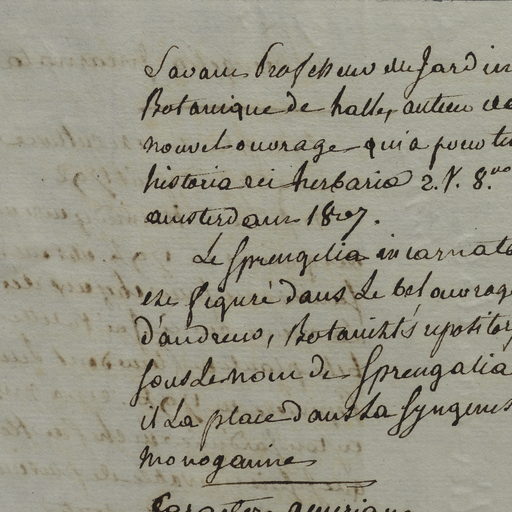 Savant Professeur du Jardin
Botanique de halle, auteur de
nouvel ouvrage qui a pour ti
historia rei herbariæ 2. V. 8.vo
amsterdam 1807.
Le Sprengelia incarnata
est figuré dans Le bel ouvrage
d'andrews, Botanist's repository
sous Le nom de Sprengalia
il La place dans La Syngenes
Monogamie
Caractere generique